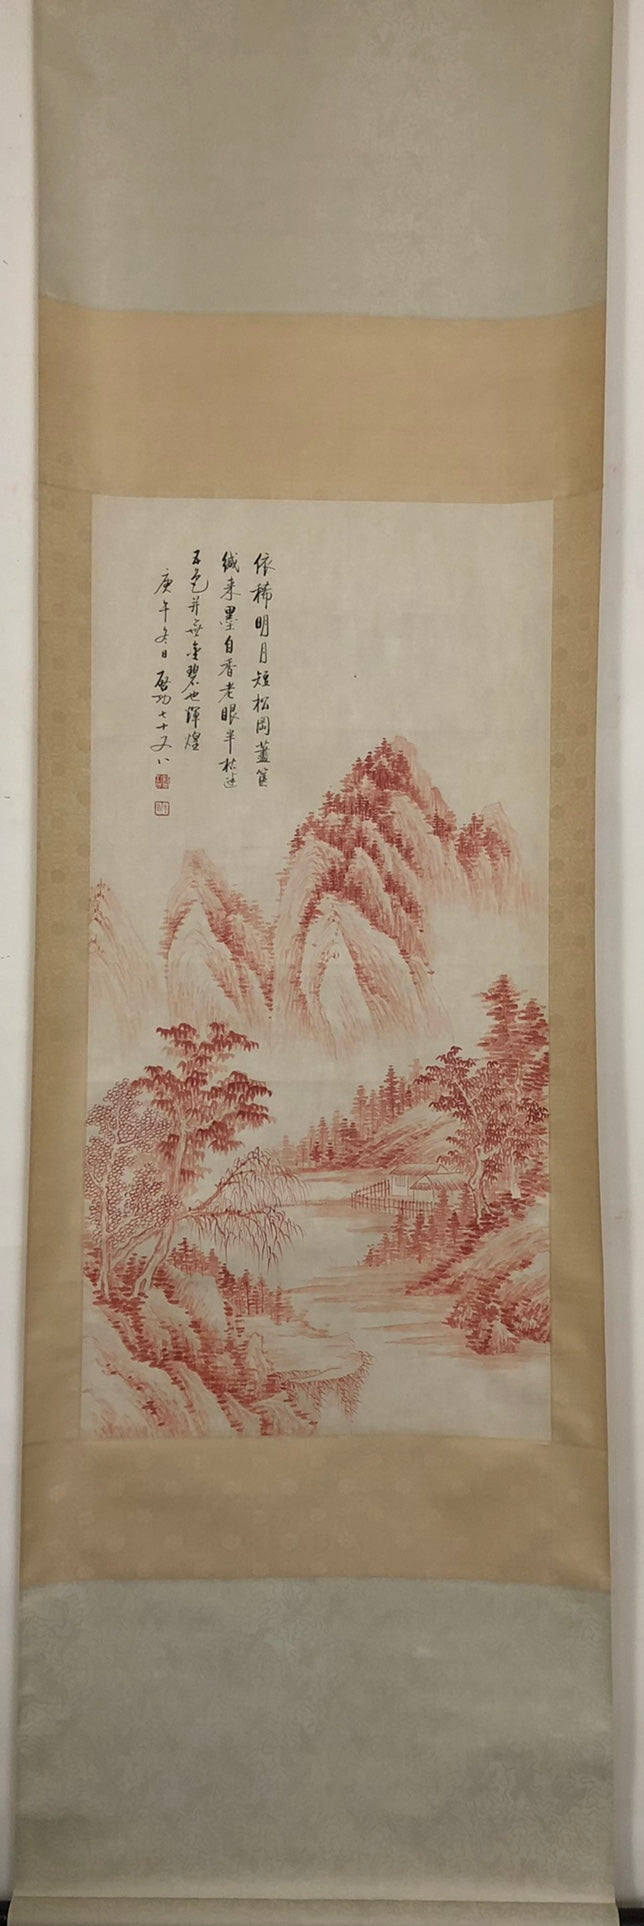 依稀明月短松岡篋
緘来墨自香老眼半枯迷
五色并無金碧也輝煌
庚午冬日啟功七十又八